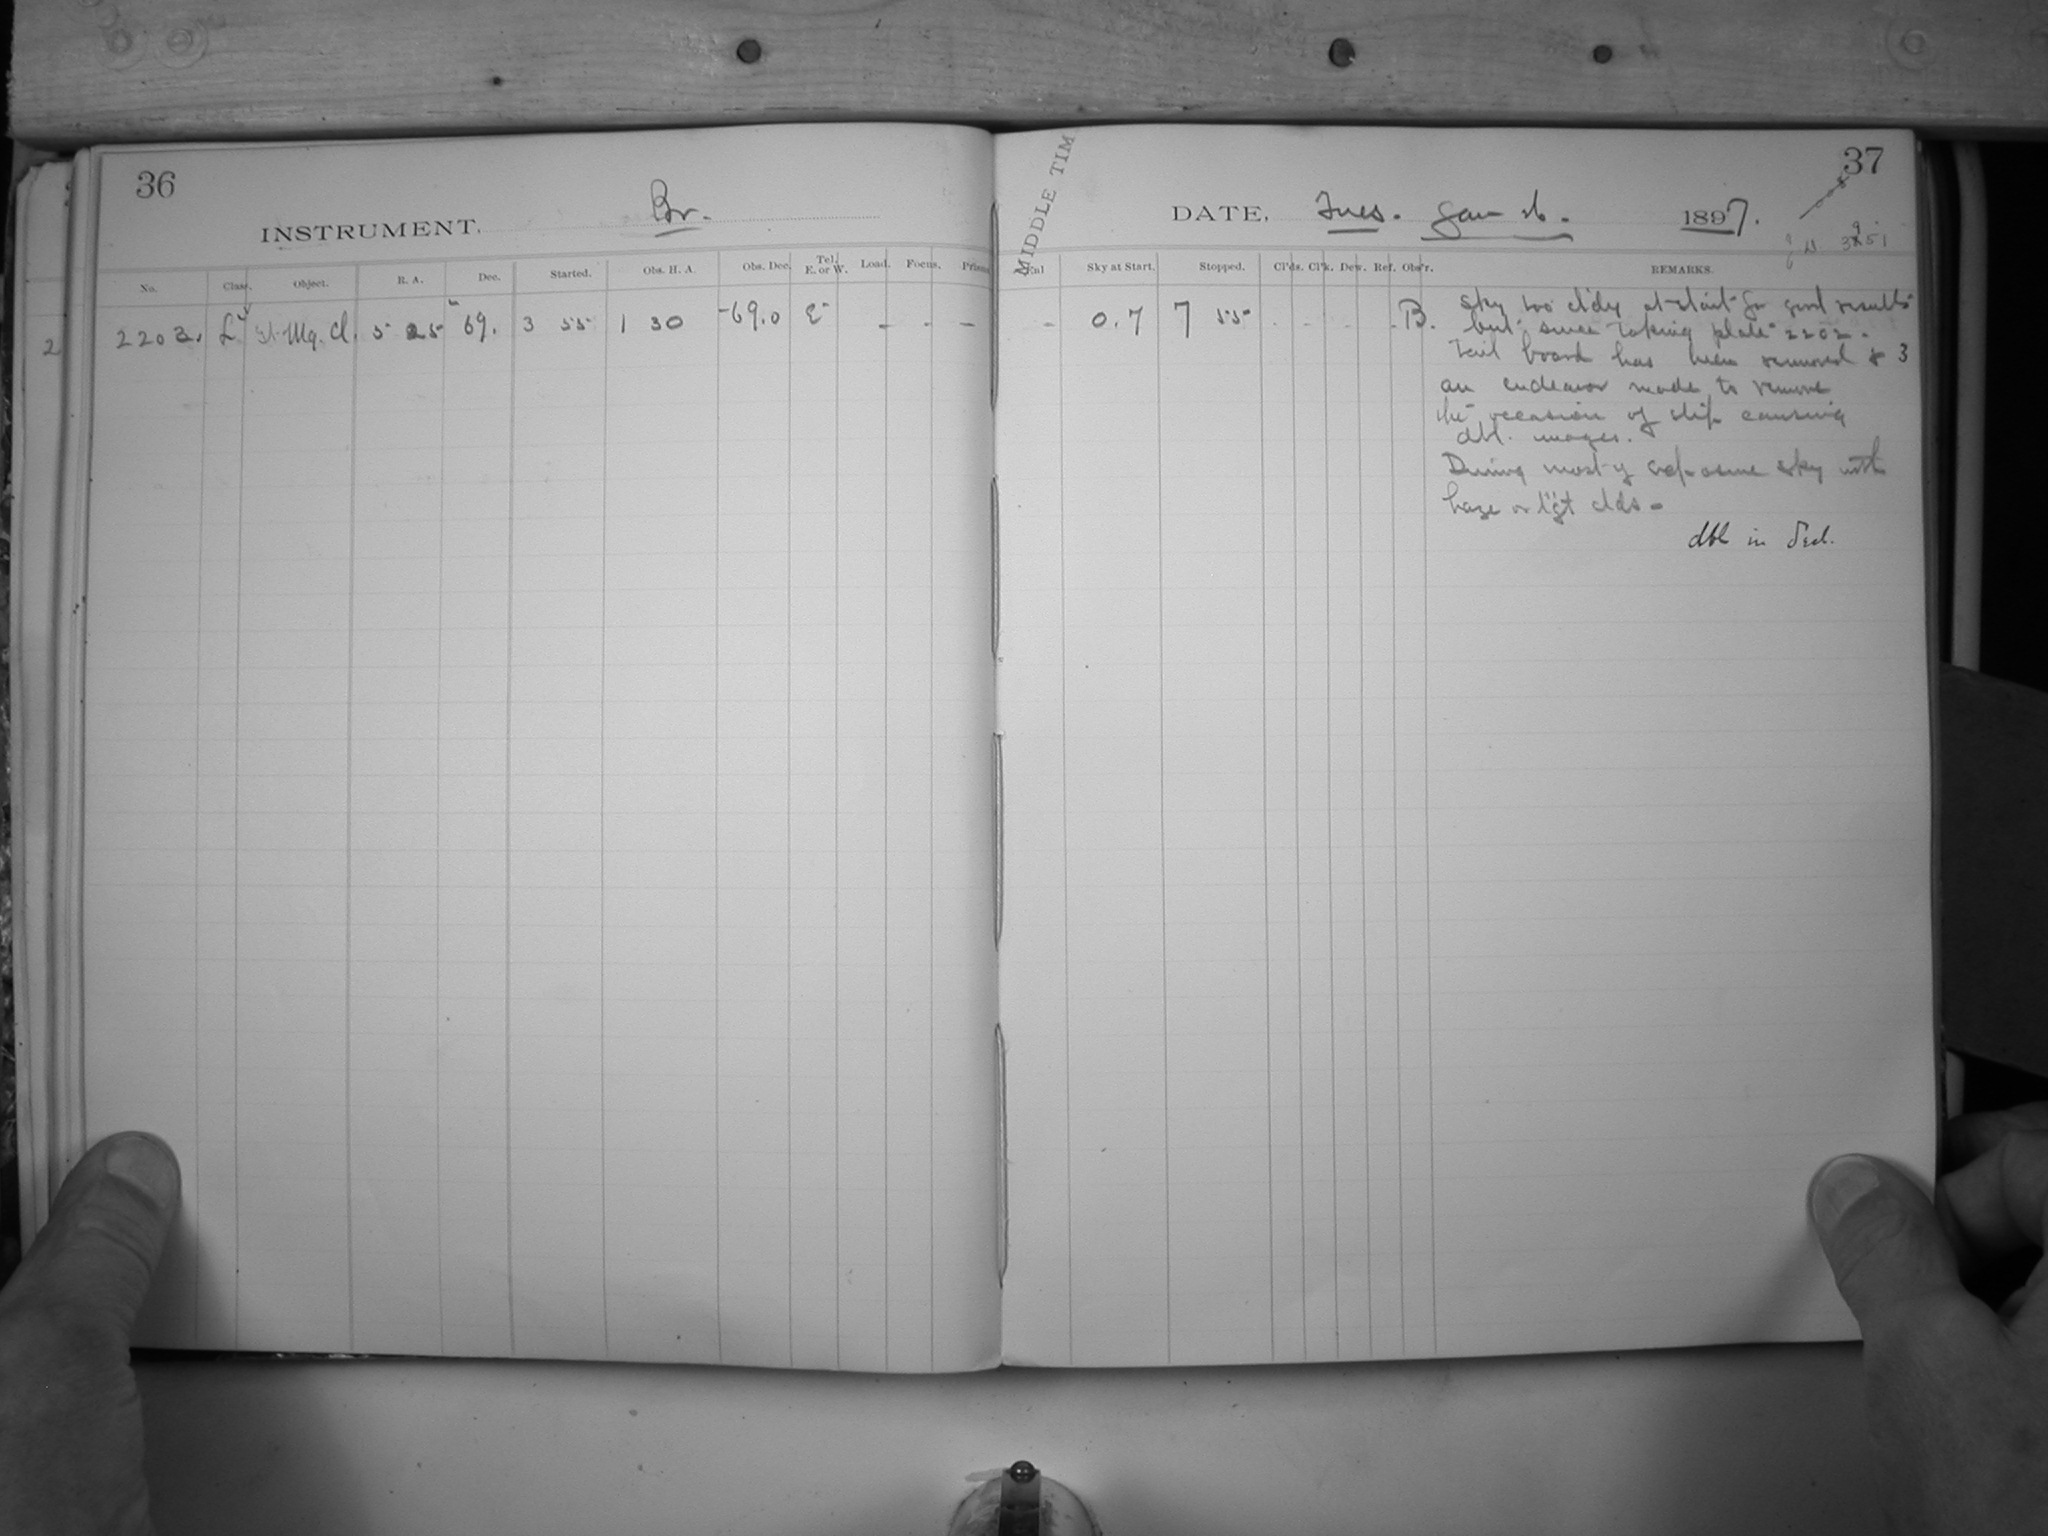 36
INSTRUMENT. Br.
No. Class. Object. R. A. Dec. Started. Obs. H. A. Obs. Dec. Tel. E. or W. Load. Focus. Prism
2203. L Mg. Cl. 5 25 69. 3 55 1 30 -69.0 E - - -
2
37
MIDDLE TIM
DATE, Tues. Jan 26. 1897.
Sky at Start. Stopped. Cl'ds. Cl'k. Dew. Ref. Obs'r. REMARKS.
- 0.7 7 55 - - - - B.
Sky too cl'dy at start for good results
but since taking plate 2202.
tail board has been removed & 3
an endeavor made to remove
the occasion of slip causing
dbl. images.
During most of exposure sky with
haze or l'gt clds -
dbl in Decl.